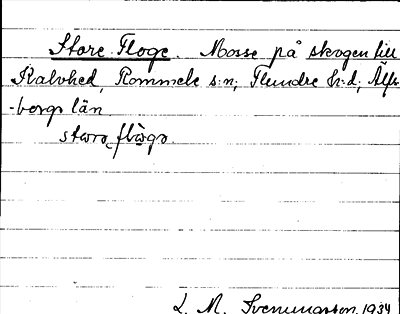 Store Floge. Mosse på skogen till
Kalvhed, Rommele s:n, Flundre h:d, Älfs-
-borgs län
L. M. Svenungsson 1934